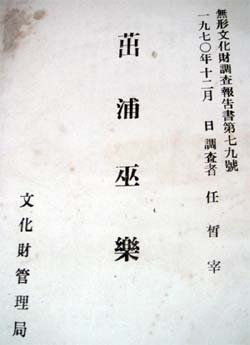 無形文化財調査報告書第七九號
一九七〇年十二月 日 調査者 任晳宰
茁浦巫樂
文化財管理局